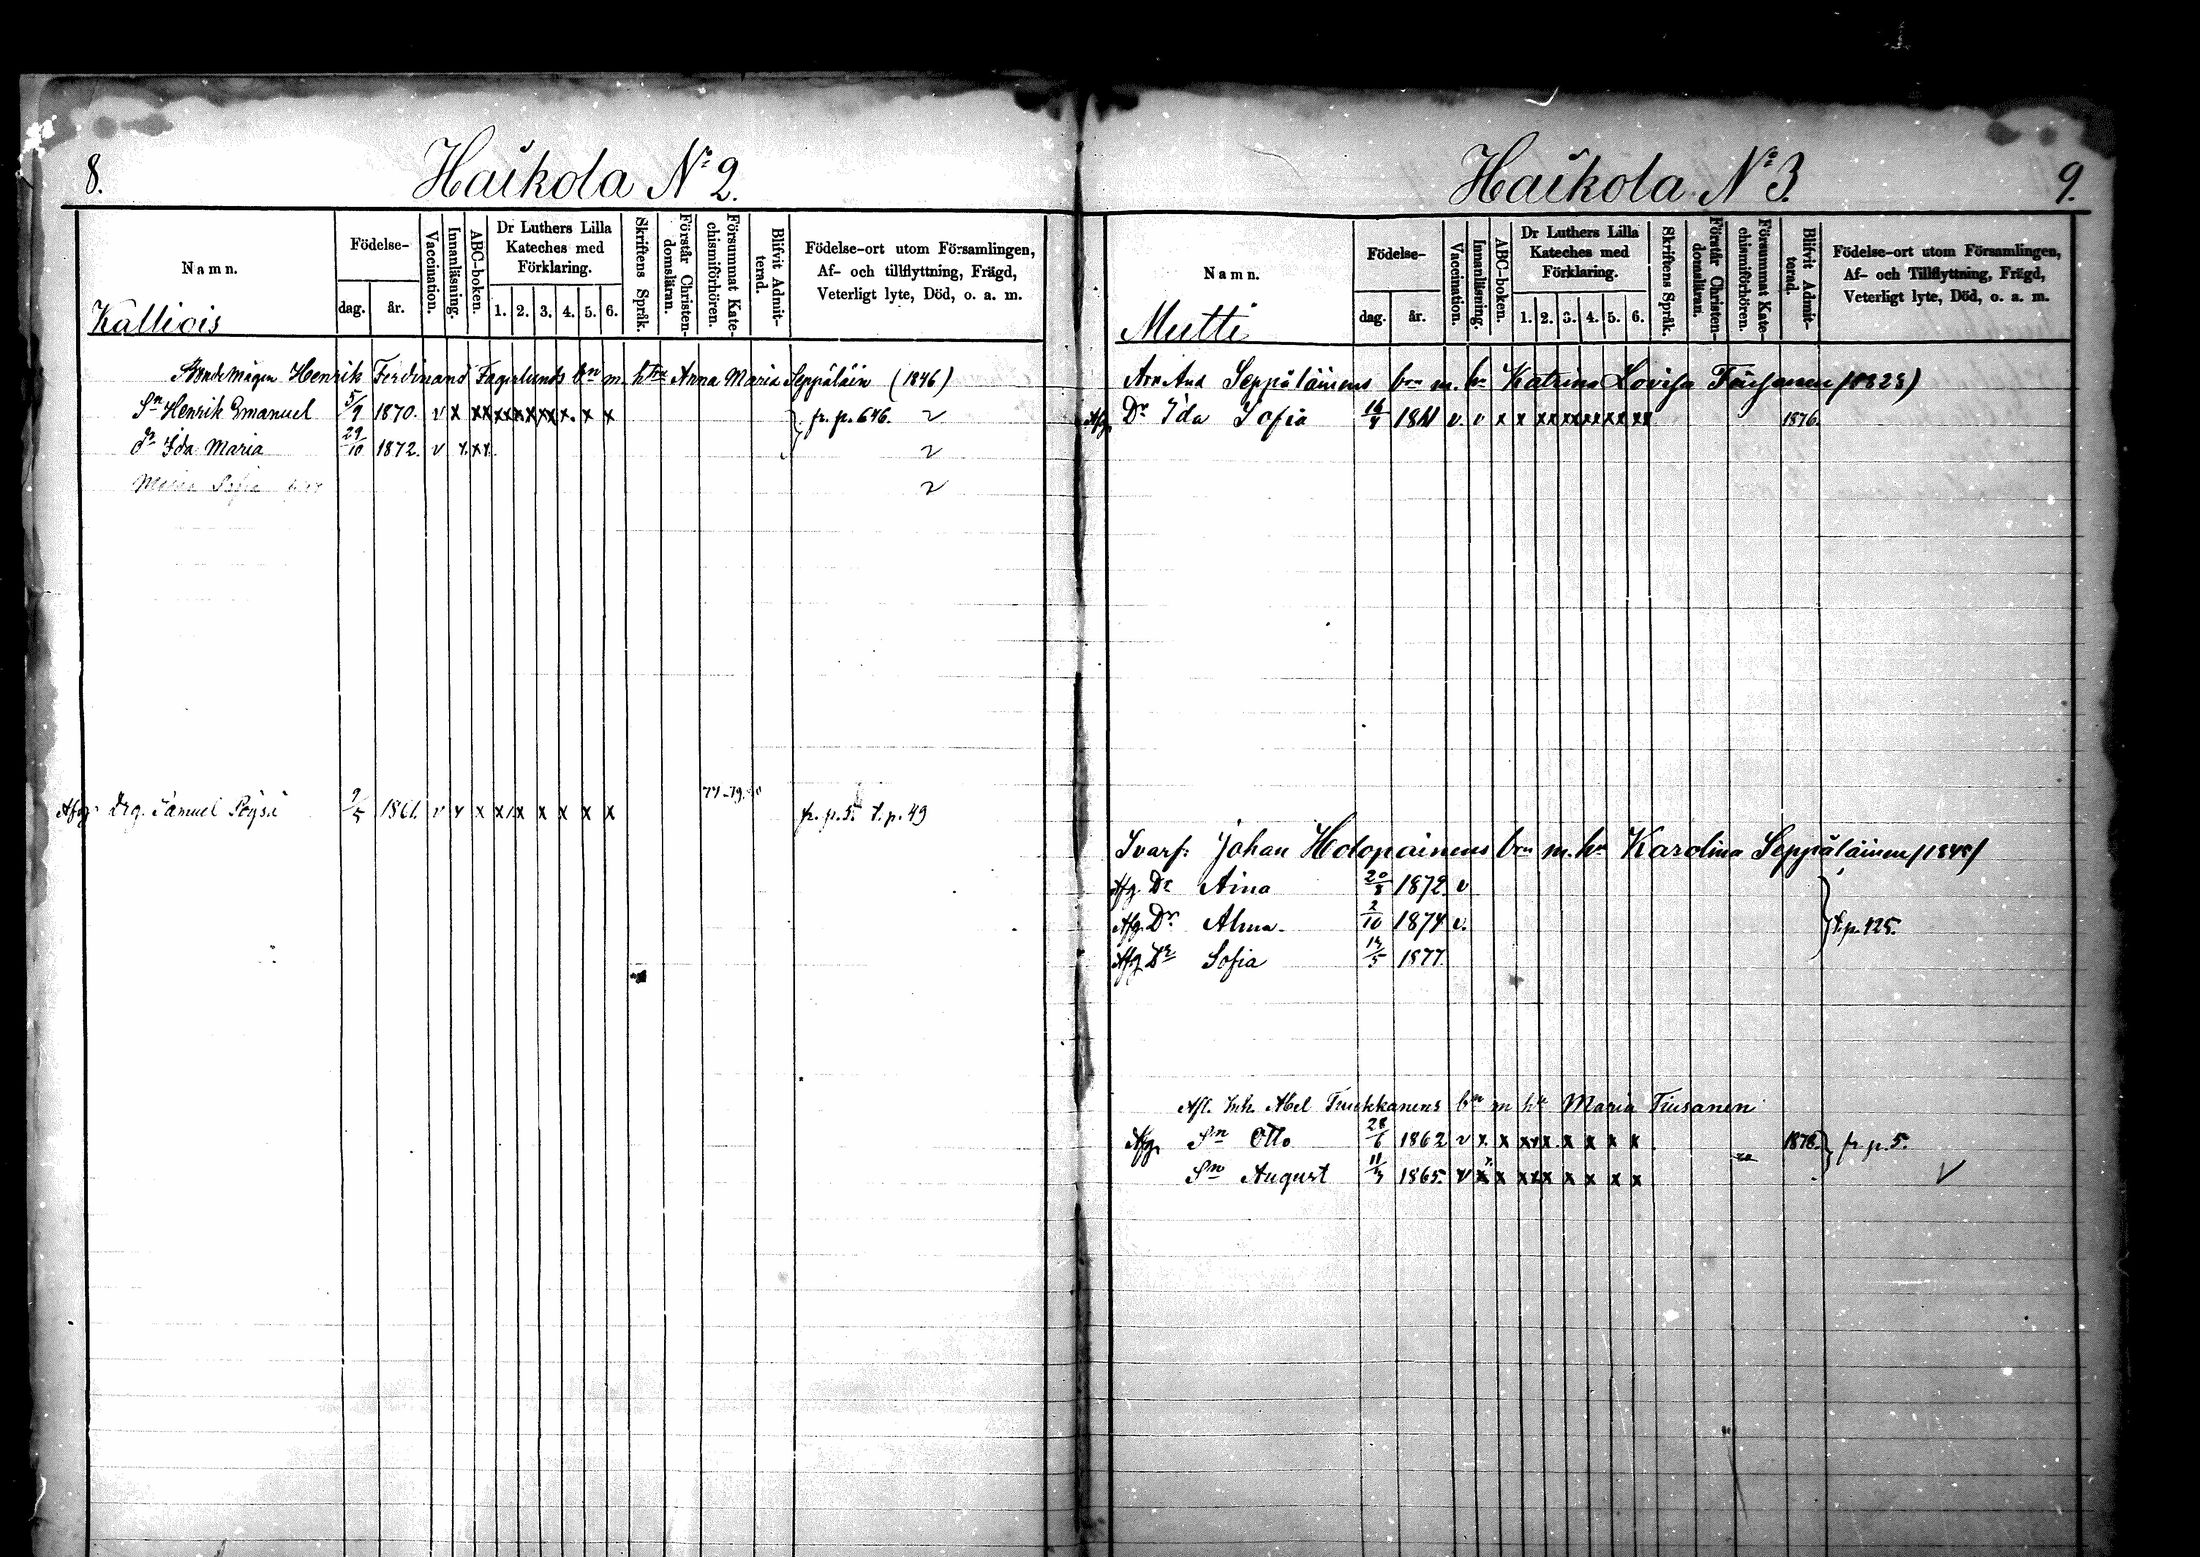 8.
Haikola Nº 2.
Namn.
Födelse-
dag.
år.
Vaccination.
Innanläsning.
ABC-boken.
Dr Luthers Lilla Kateches med Förklaring.
1. 2. 3. 4. 5. 6.
Skriftens Språk.
Förstår Christendomsläran.
Försummat Katechismiförhören.
Blifvit Admitterad.
Födelse-ort utom Församlingen, Af- och tillflyttning, Frägd, Veterligt lyte, Död, o. a. m.
Kalliois
Henrik Ferdinand Fagerlunds bn m. h Anna Maria Seppäläin (1846)
Sn Henrik Emanuel 5/9 1870. v x xx xx x x x x. x x fr. p. 646. v
dr Ida Maria 29/10 1872. v x. xx. v
Maria Sofia v
77-79.
Afg. Drg. Samuel Pöysä 1861. v x x x x x x x x fr. p. 5. t. p. 49
Haikola Nº 3.
9.
Namn.
Födelse-
dag.
år.
Vaccination.
Innanläsning.
ABC-boken.
Dr Luthers Lilla Kateches med Förklaring.
1. 2. 3. 4. 5. 6.
Skriftens Språk.
Förstår Christendomsläran.
Försummat Katechismiförhören.
Blifvit Admitterad.
Födelse-ort utom Församlingen, Af- och Tillflyttning, Frägd, Veterligt lyte, Död, o. a. m.
Mutti
Seppäläinens bn m. hu Katrina Lovisa
Afg. Dr Ida Sofia v. v x x xx xx xx xx xx 1876.
Svarf: Johan Holopainens bn m. hu Karolina Seppäläinen
Afg. Dr Aina 20/8 1872 v
Afg. Dr Alma. 2/10 1874 v. t. p. 125.
Afg Dr Sofia 1877.
Afl. Inh. Abel Turkkanens bn m hu Maria Tiusanen
Afg. Sn Otto 28/6 1862 v x. x xxx. x x x x 1878. fr. p. 5.
Sn August 1865. v x x xxx x x x x V